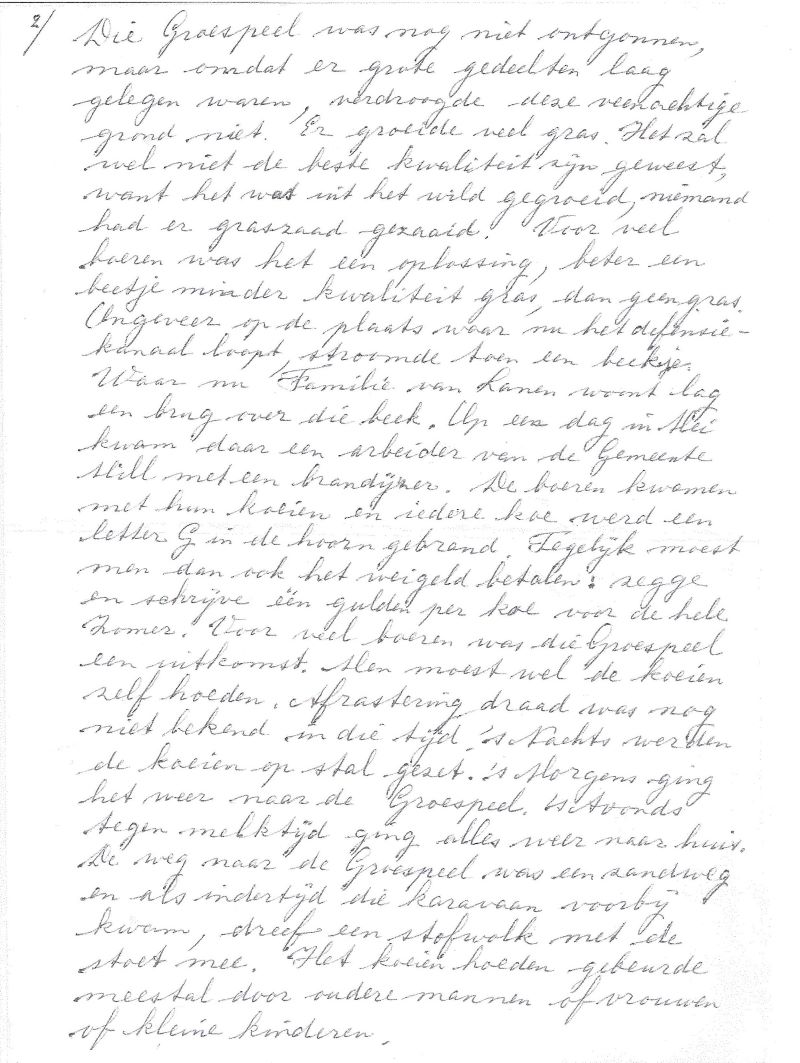 2/
Die Groespeel was nog niet ontgonnen,
maar omdat er grote gedeelten laag
gelegen waren, verdroogde deze veenachtige
grond niet. Er groeide veel gras. Het zal
wel niet de beste kwaliteit zijn geweest,
want het was uit het wild gegroeid, niemand
had er graszaad gezaaid. Voor veel
boeren was het een oplossing, beter een
beetje minder kwaliteit gras, dan geen gras.
Ongeveer op de plaats waar nu het defensie-
kanaal loopt, stroomde toen een beekje.
Waar nu Familie van Lanen woont lag
een brug over die beek. Op een dag in Mei
kwam daar een arbeider van de Gemeente
Mill met een brandijzer. De boeren kwamen
met hun koeien en iedere koe werd een
letter G in de hoorn gebrand. Tegelijk moest
men dan ook het weigeld betalen: zegge
en schrijve één gulden per koe voor de hele
Zomer. Voor veel boeren was die Groespeel
een uitkomst. Men moest wel de koeien
zelf hoeden. Afrastering draad was nog
niet bekend in die tijd. 's Nachts werden
de koeien op stal gezet. 's Morgens ging
het weer naar de Groespeel. 's Avonds
tegen melktijd ging alles weer naar huis.
De weg naar de Groespeel was een zandweg
en als indertijd die karavaan voorbij
kwam, dreef een stofwolk met de
stoet mee. Het koeien hoeden gebeurde
meestal door oudere mannen of vrouwen
of kleine kinderen.